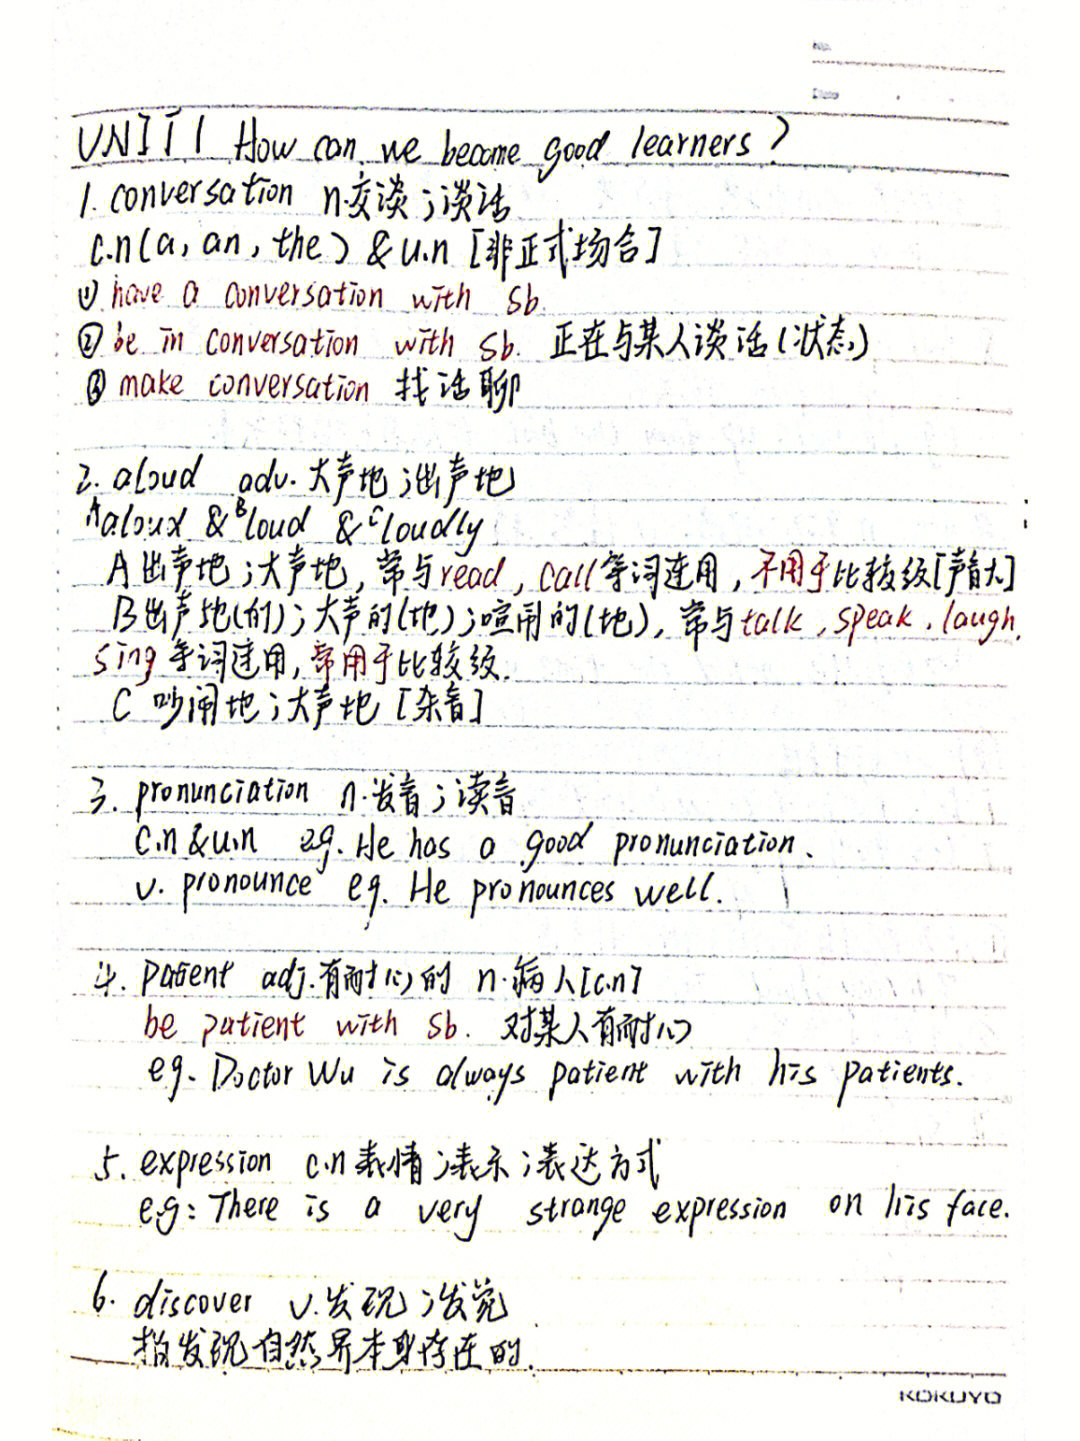 No.
Date
UNIT 1 How can we become good learners?
1. conversation n.交谈;谈话
c.n(a, an, the) & u.n [非正式场合]
① have a conversation with sb.
② be in conversation with sb. 正在与某人谈话(状态)
③ make conversation 找话聊
2. aloud adv. 大声地;出声地
A aloud & B loud & C loudly
A 出声地;大声地, 常与read, call等词连用, 不用于比较级[声音大]
B 出声地(的);大声的(地);喧闹的(地), 常与talk, speak, laugh,
sing 等词连用, 常用于比较级.
C 吵闹地;大声地 [杂音]
3. pronunciation n.发音;读音
c.n & u.n eg. He has a good pronunciation.
v. pronounce eg. He pronounces well.
4. patient adj.有耐心的 n.病人[c.n]
be patient with sb. 对某人有耐心
eg. Doctor Wu is always patient with his patients.
5. expression c.n 表情;表示;表达方式
eg: There is a very strange expression on his face.
6. discover v.发现;发觉
指发现自然界本身存在的.
KOKUYO